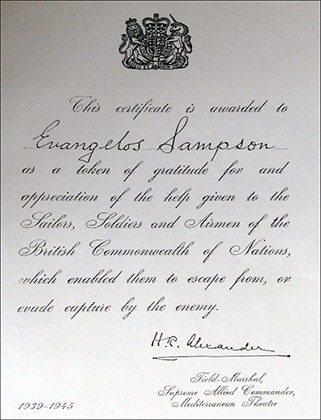 This certificate is awarded to
Evangelos Sampson
as a token of gratitude for and
appreciation of the help given to the
Sailors, Soldiers and Airmen of the
British Commonwealth of Nations,
which enabled them to escape from, or
evade capture by the enemy.
H.R. Alexander
Field-Marshal,
Supreme Allied Commander,
Mediterranean Theatre
1939-1945